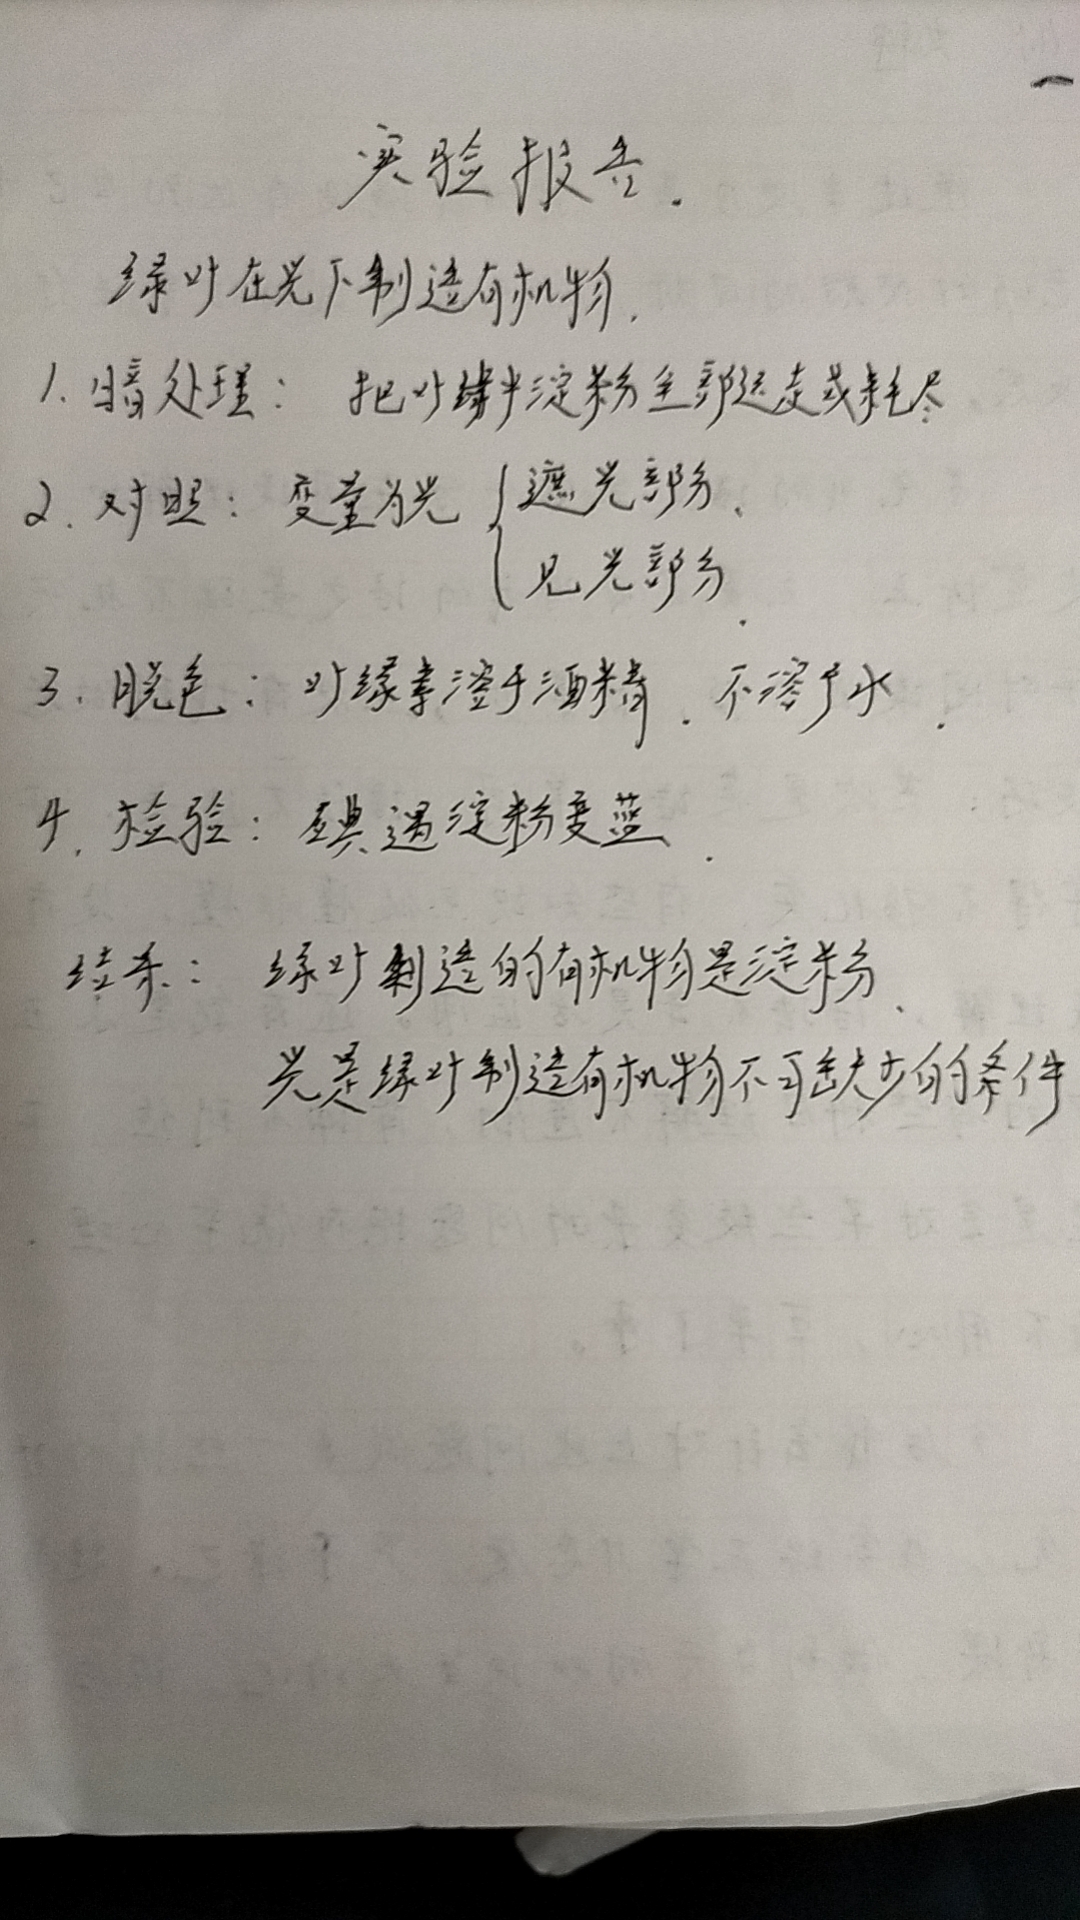 实验报告.
绿叶在光下制造有机物.
1.暗处理: 把叶绿中淀粉全部运走或耗尽
2.对照: 变量为光 { 遮光部分、
见光部分.
3.脱色: 叶绿素溶于酒精.不溶于水.
4.检验: 碘遇淀粉变蓝.
结果: 绿叶制造的有机物是淀粉、
光是绿叶制造有机物不可缺少的条件